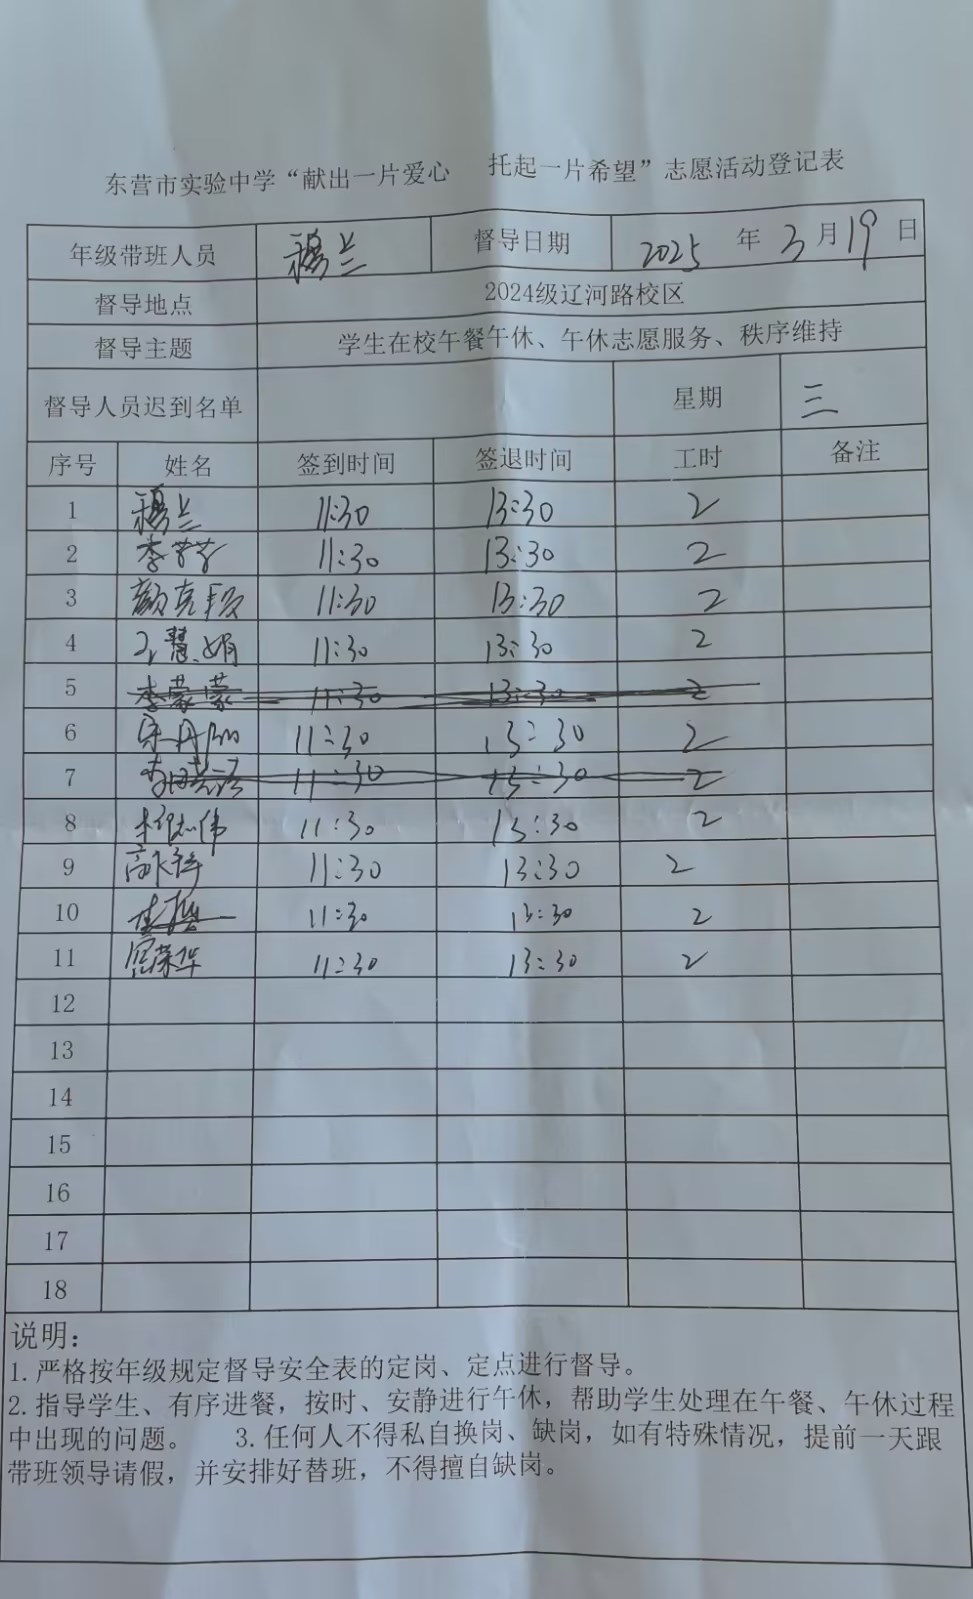 东营市实验中学“献出一片爱心 托起一片希望”志愿活动登记表
年级带班人员 穆兰 督导日期 2025 年 3 月 19 日
督导地点 2024级辽河路校区
督导主题 学生在校午餐午休、午休志愿服务、秩序维持
督导人员迟到名单 星期 三
序号 姓名 签到时间 签退时间 工时 备注
1 穆兰 11:30 13:30 2
2 李芳芳 11:30 13:30 2
3 颜克顺 11:30 13:30 2
4 王慧娟 11:30 13:30 2
5 李蒙蒙 11:30 13:30 2
6 宋丹丹 11:30 13:30 2
7 11:30 13:30 2
8 志伟 11:30 13:30 2
9 高 11:30 13:30 2
10 11:30 13:30 2
11 荣华 11:30 13:30 2
12
13
14
15
16
17
18
说明：
1.严格按年级规定督导安全表的定岗、定点进行督导。
2.指导学生、有序进餐，按时、安静进行午休，帮助学生处理在午餐、午休过程
中出现的问题。 3.任何人不得私自换岗、缺岗，如有特殊情况，提前一天跟
带班领导请假，并安排好替班，不得擅自缺岗。